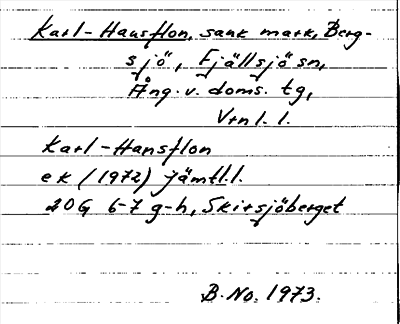 Karl-Hansflon, sank mark, Berg-
sjö, Fjällsjö sn,
Ång. v. doms. tg,
Vrnl. l.
Karl-Hansflon
ek (1972) Jämtl.l.
20G 6-7 g-h, Skirsjöberget
B.No. 1973.